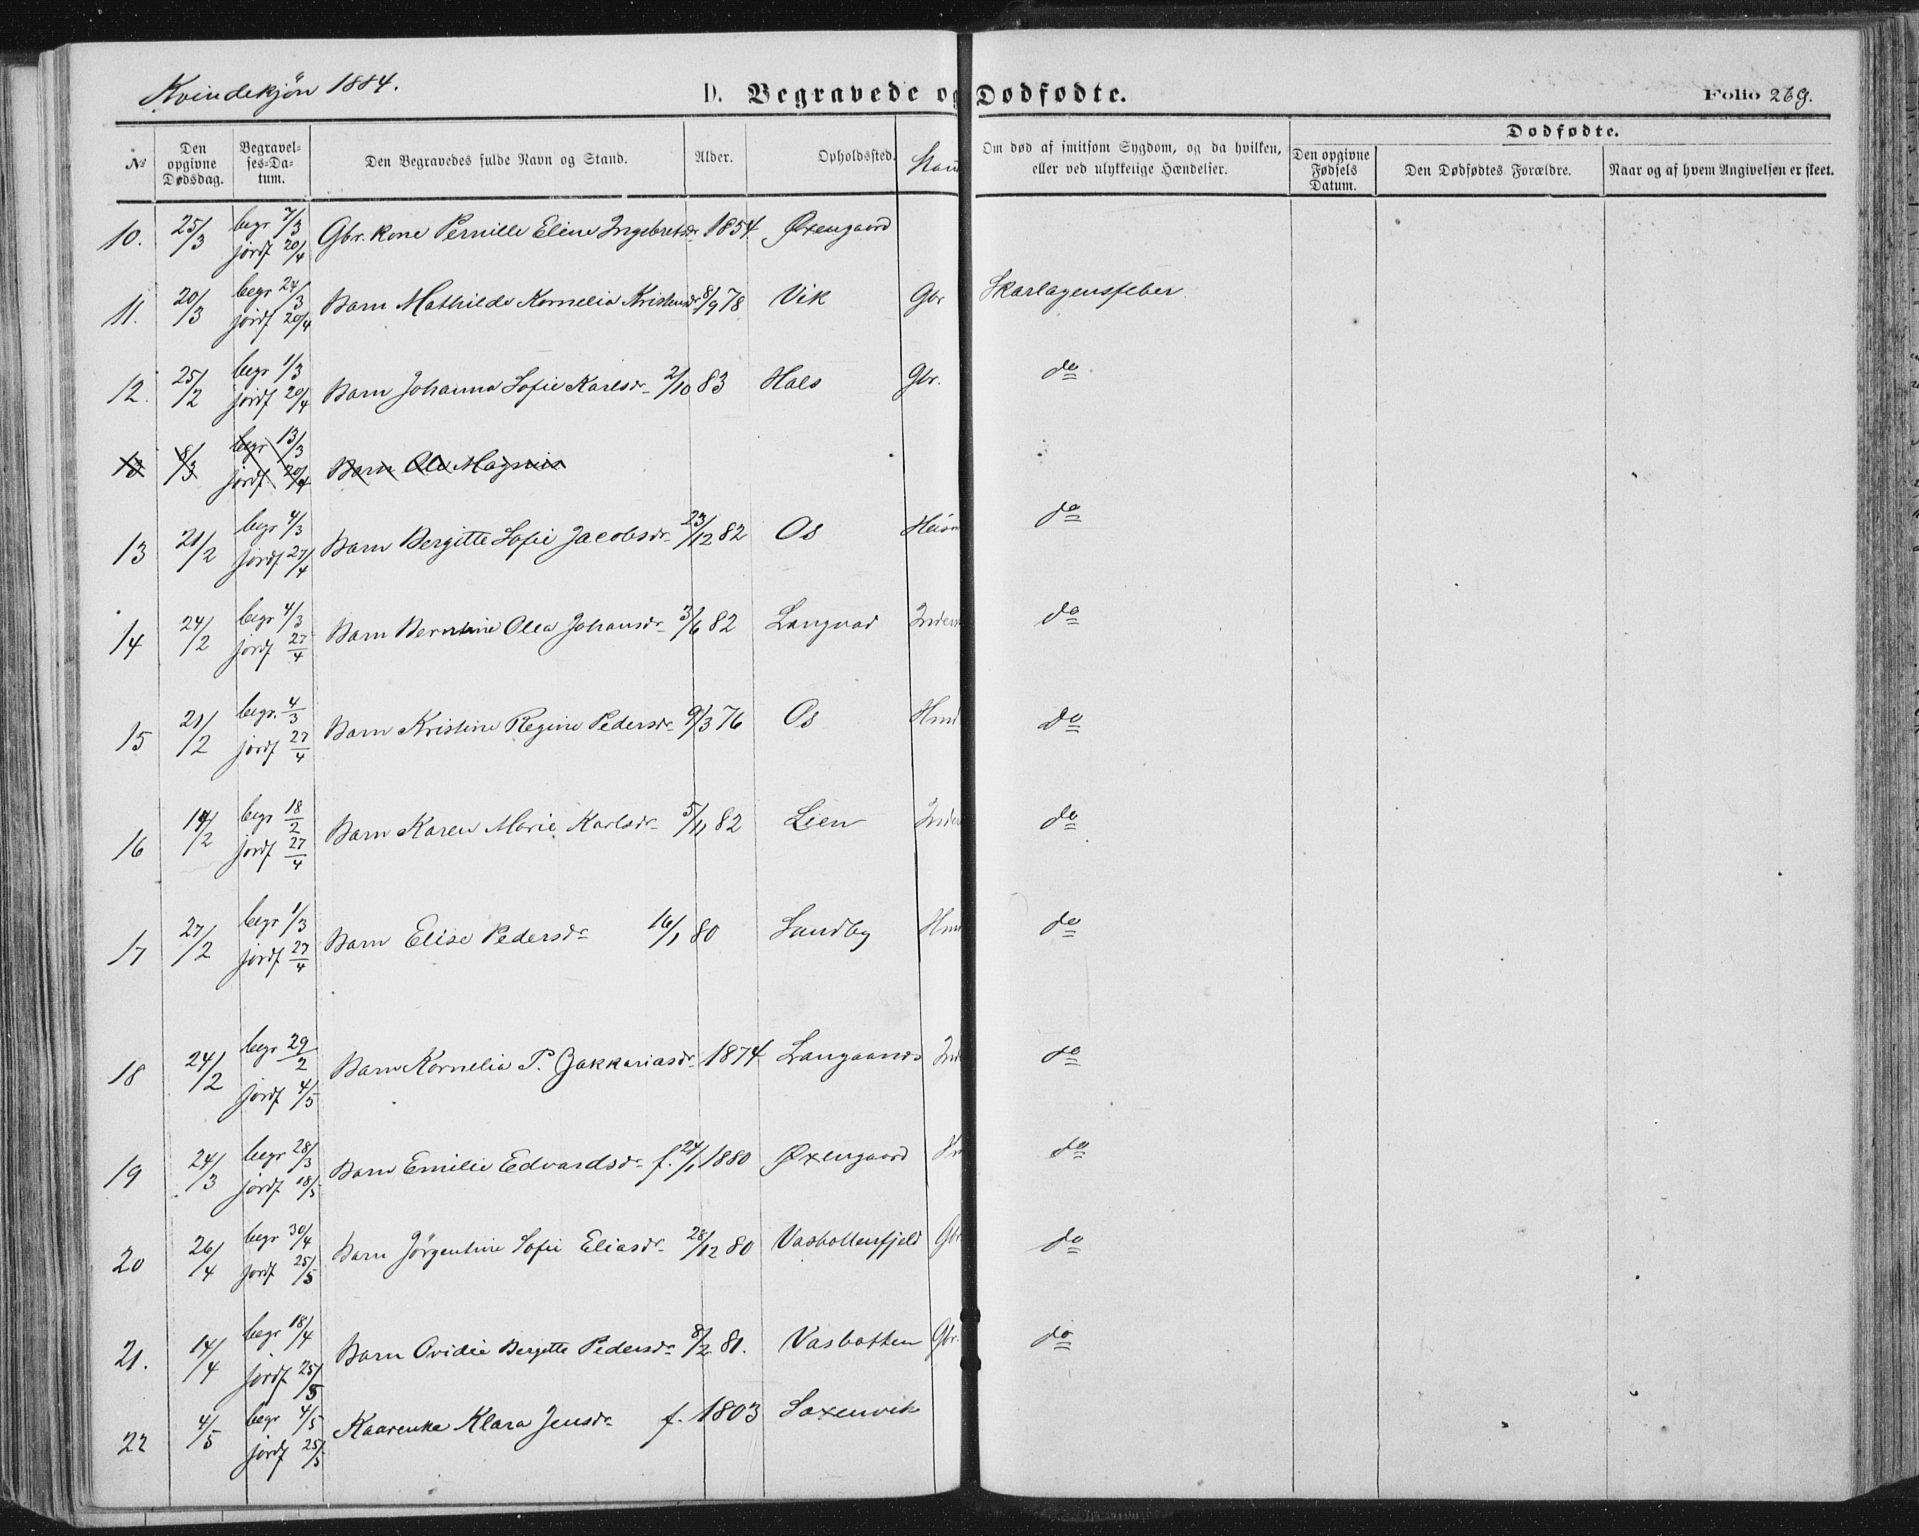 Kvindekjön 1884.
D. Begravede og Dødfødte.
Folio 269.
№
Den opgivne Dødsdag.
Begravelses-Datum.
Den Begravedes fulde Navn og Stand.
Alder.
Opholdssted.
Om død af smitsom Sygdom, og da hvilken, eller ved ulykkelige Hændelser.
Dødfødte.
Den opgivne Fødsels Datum.
Den Dødfødtes Forældre.
Naar og af hvem Angivelsen er skeet.
10. 25/3 begr 7/3 jordf 20/4 Gbr. kone Pernille Eline Ingebretsdr 1854 Øxengaard
11. 20/3 begr 24/3 jordf 20/4 Barn Mathilde Kornelia Kristensdr 8/9 78 Vik Gbr Skarlagensfeber
12. 25/2 begr 1/3 jordf 20/4 Barn Johanna Sofie Karlsdr 2/10 83 Hals Gbr. do
13 8/3 begr 13/3 jordf 20/4 Barn Ole Magnus
13 21/2 begr 4/3 jordf 27/4 Barn Bergitte Sofie Jacobsdr 23/12 82 Os Husm do
14 24/2 begr 4/3 jordf 27/4 Barn Berntine Olea Johansdr 3/6 82 Langvad Inders do
15 21/2 begr. 4/3 jordf 27/4 Barn Kristine Regine Pedersdr 9/3 76 Os Hmd do
16 14/2 begr 18/2 jordf 27/4 Barn Karen Marie Karlsdr 5/11 82 Lien Inder do
17 27/2 begr 1/3 jordf 27/4 Barn Elise Pedersdr 16/1 80 Sundby Hm do
18 24/2 begr 29/2 jordf 4/5 Barn Kornelia P. Zakkariasdr 1874 Langaanes Ind do
19 24/3 begr 28/3 jordf 18/5 Barn Emilie Edvardsdr f. 24/1 1880 Øxengaard do
20 26/4 begr 30/4 jordf 25/5 Barn Jörgentine Sofie Eliasdr 28/12 80 Vasbottenfjeld Gbr do
21. 14/4 begr 18/4 jordf 25/5 Barn Ovidie Bergitte Pedersdr 8/2 81. Vasbotten Gbr. do
22 4/5 begr 4/5 jordf 25/5 Kaarenke Klara Jensdr f. 1803 Saxenvik